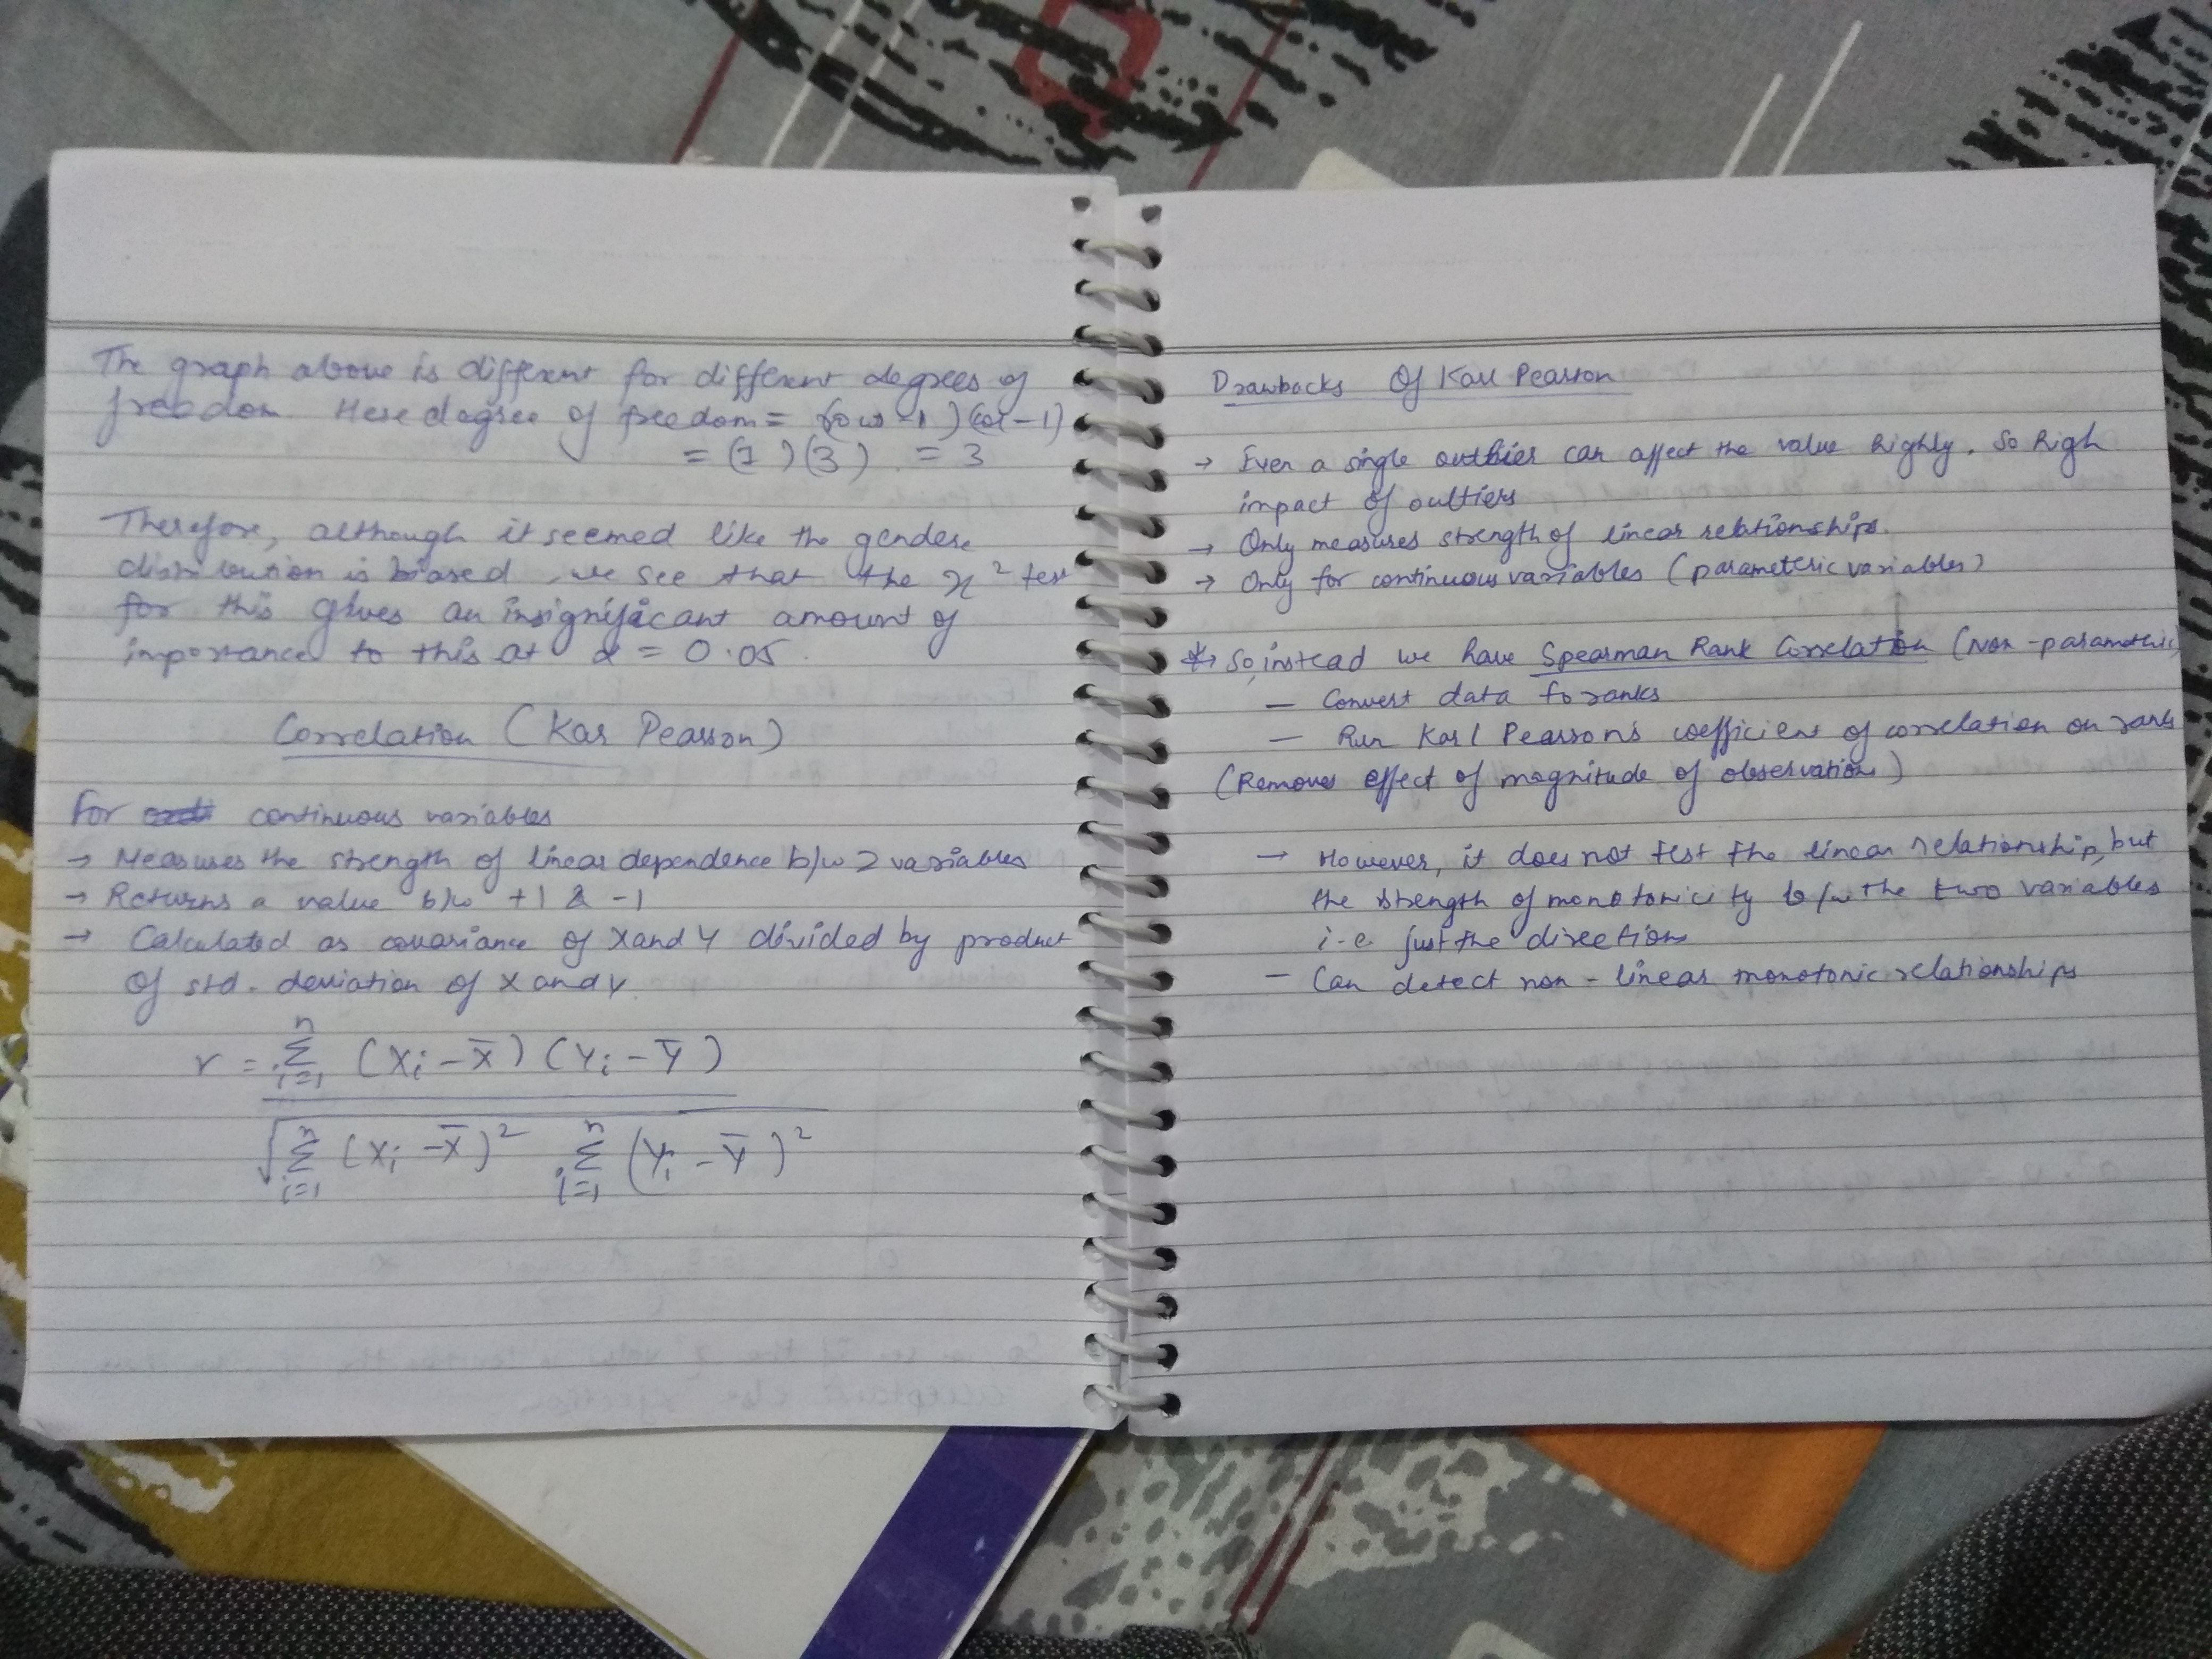 The graph above is different for different degrees of
freedom. Here degree of freedom = (row-1)(col-1)
= (1)(3) = 3
Therefore, although it seemed like the gender
distribution is biased, we see that the x² test
for this gives an insignificant amount of
importance to this at α = 0.05.
Correlation (Kar Pearson)
For continuous variables
→ Measures the strength of linear dependence b/w 2 variables
→ Returns a value b/w +1 & -1
→ Calculated as covariance of X and Y divided by product
of std. deviation of X and Y.
r = Σ (Xi - X̄) (Yi - Ȳ)
n
i=1
√ Σ (Xi - X̄)² Σ (Yi - Ȳ)²
n n
i=1 i=1
Drawbacks Of Karl Pearson
→ Even a single outlier can affect the value highly. So high
impact of outliers
→ Only measures strength of linear relationships.
→ Only for continuous variables (parameteric variables)
*→ So, instead we have Spearman Rank Correlation (Non-parametric)
- Convert data to ranks
- Run Karl Pearson's coefficient of correlation on ranks
(Removes effect of magnitude of observations)
→ However, it does not test the linear relationship, but
the strength of monotonicity b/w the two variables
i.e. just the direction
- Can detect non-linear monotonic relationships